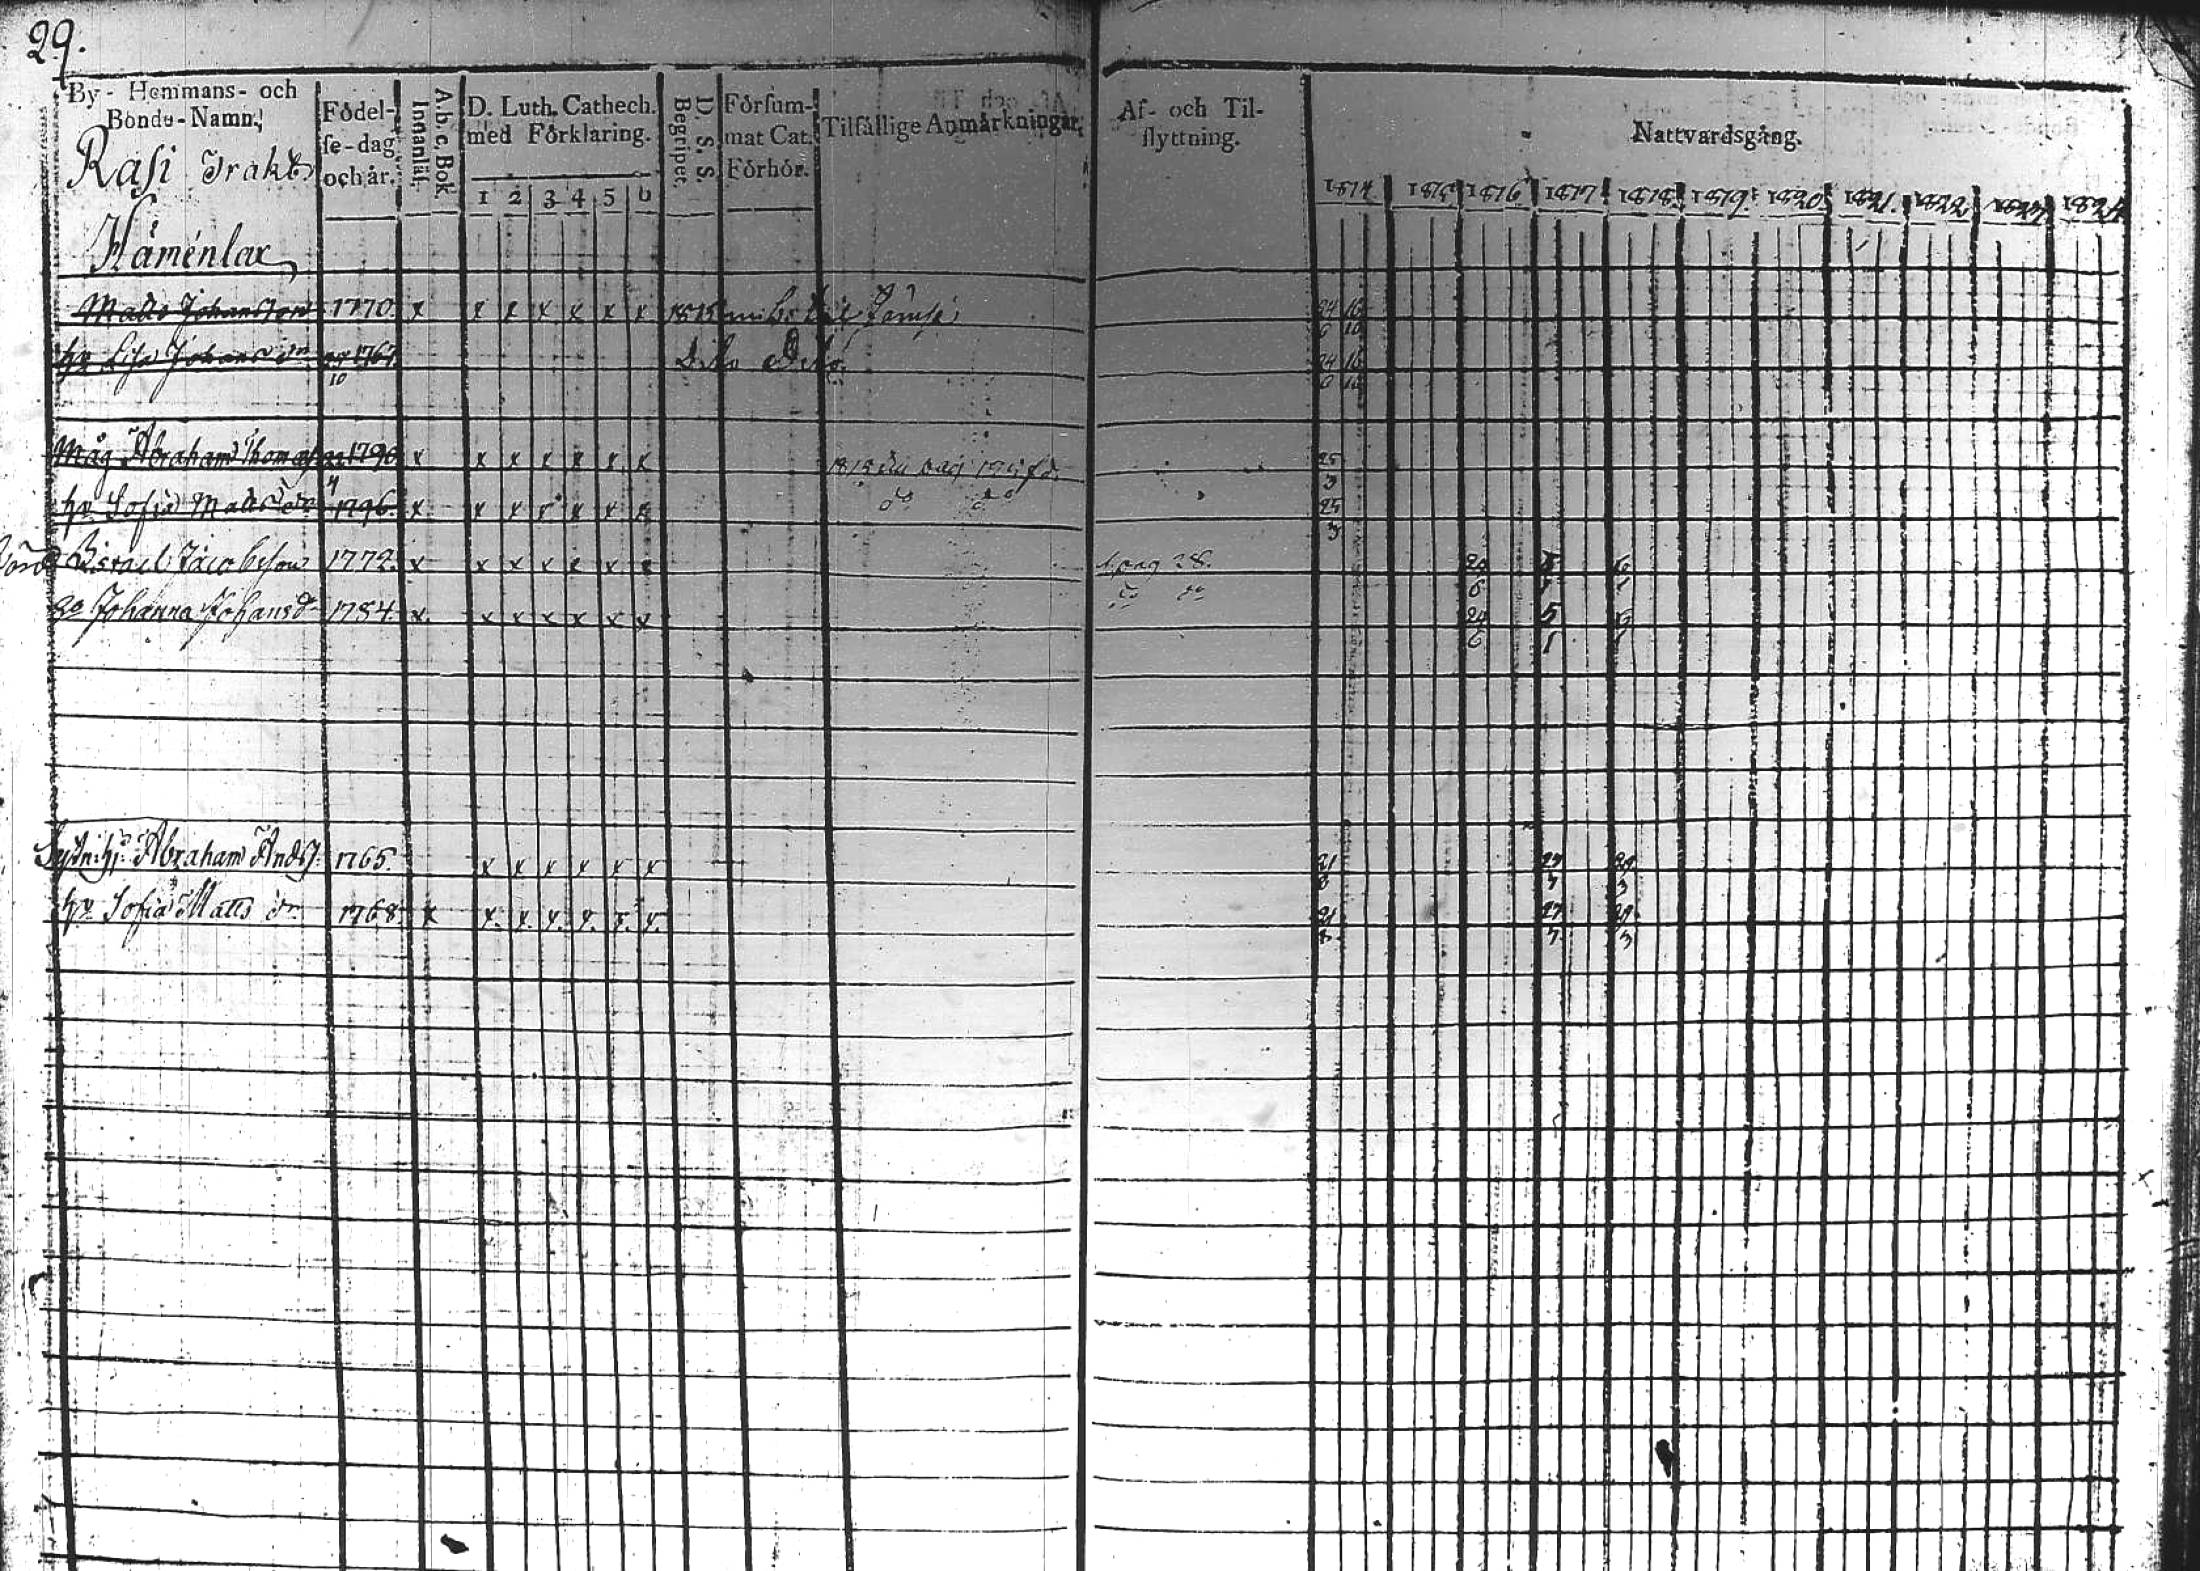 29.
By- Hemmans- och Bonde-Namn. Födel-se-dag och år. Innanläs. A, b, c, Bok. D. Luth. Cathech. med Förklaring. D. S. S. Begripet. Försum-mat Cat. Förhör. Tilfällige Anmärkningar. Af- och Til-flyttning. Nattvardsgång.
1 2 3 4 5 6
1814 1815 1816 1817 1818 1819 1820 1821 1822 1823 1824
Rasi Trakt
Håménlax
Matts Johansson 1770. x x x x x x x 1815 Jämsä 24 16
6 10
hu Lisa Johans dr 1767. Dito Dito 24 16
10 6 10
Måg Abraham Thomas 22 1796 x x x x x x x 1815 pag 195 25
4 3
hu Sofia Matts dr 1796. x x x x x x x do do 25
3
Israel Jacobsson 1772. x x x x x x x pag 28. 24 5 6
6 1 1
Johanna Johansdr 1784. x. x x x x x x 24 5 6
6 1 1
Abraham Ands. 1765. x x x x x x 21 27 29
8 7 3
hu Sofia Matts dr 1768. x x. x. x. x. x. x. 21 27 29
8 7 3